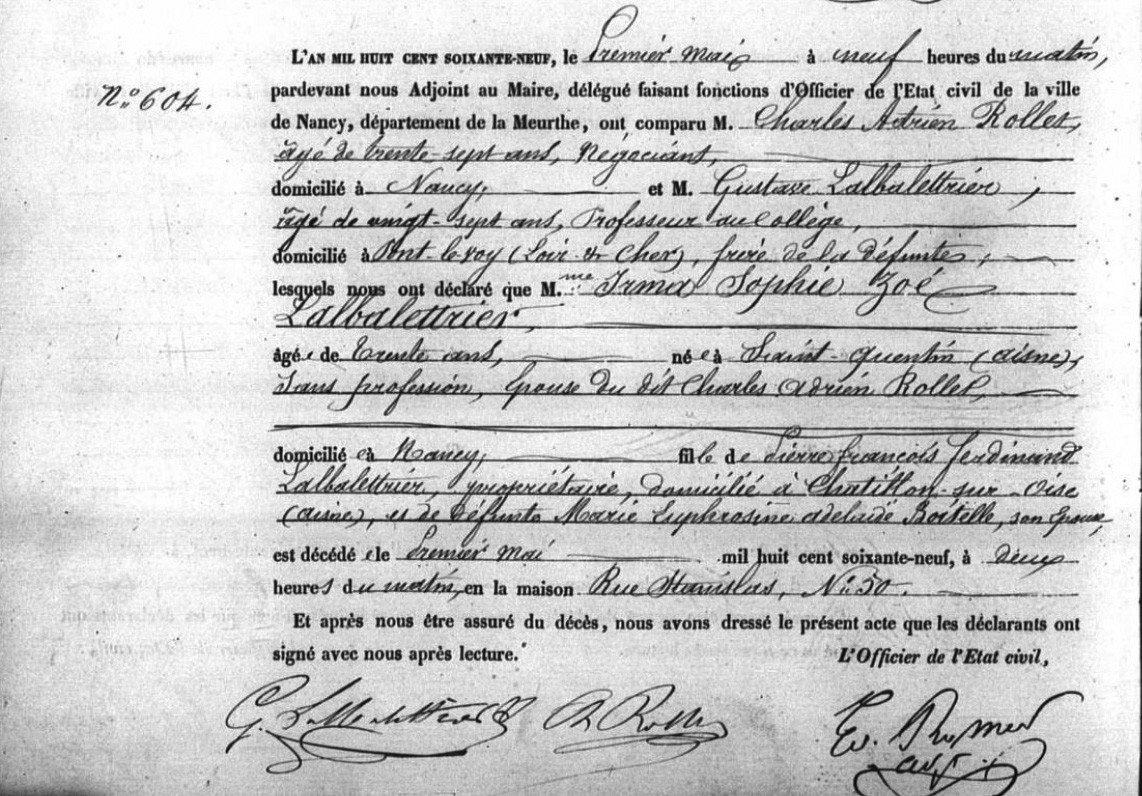 L'AN MIL HUIT CENT SOIXANTE-NEUF, le Premier Mai à neuf heures du matin,
N.o 604.
pardevant nous Adjoint au Maire, délégué faisant fonctions d'Officier de l'Etat civil de la ville
de Nancy, département de la Meurthe, ont comparu M. Charles Adrien Rollet,
âgé de trente-sept ans, Négociant,
domicilié à Nancy, et M. Gustave Lalbalettrier,
âgé de vingt-sept ans, Professeur au Collège,
domicilié à Pont-levoy (Loir-&-Cher), frère de la défunte,
lesquels nous ont déclaré que M.me Irma Sophie Zoé
Lalbalettrier,
âgée de trente ans, née à Saint-Quentin (aisne),
sans profession, épouse du dit Charles Adrien Rollet,
domiciliée à Nancy, fille de Pierre françois Ferdinand
Lalbalettrier, propriétaire, domicilié à Chatillon-sur-Oise
(aisne), et de défunte Marie Euphrosine adelaïde Boitelle, son épouse,
est décédée le Premier Mai mil huit cent soixante-neuf, à deux
heures du matin, en la maison Rue Stanislas, N.o 50.
Et après nous être assuré du décès, nous avons dressé le présent acte que les déclarants ont
signé avec nous après lecture.
L'Officier de l'Etat civil,
G. Lalbalettrier Ch Rollet